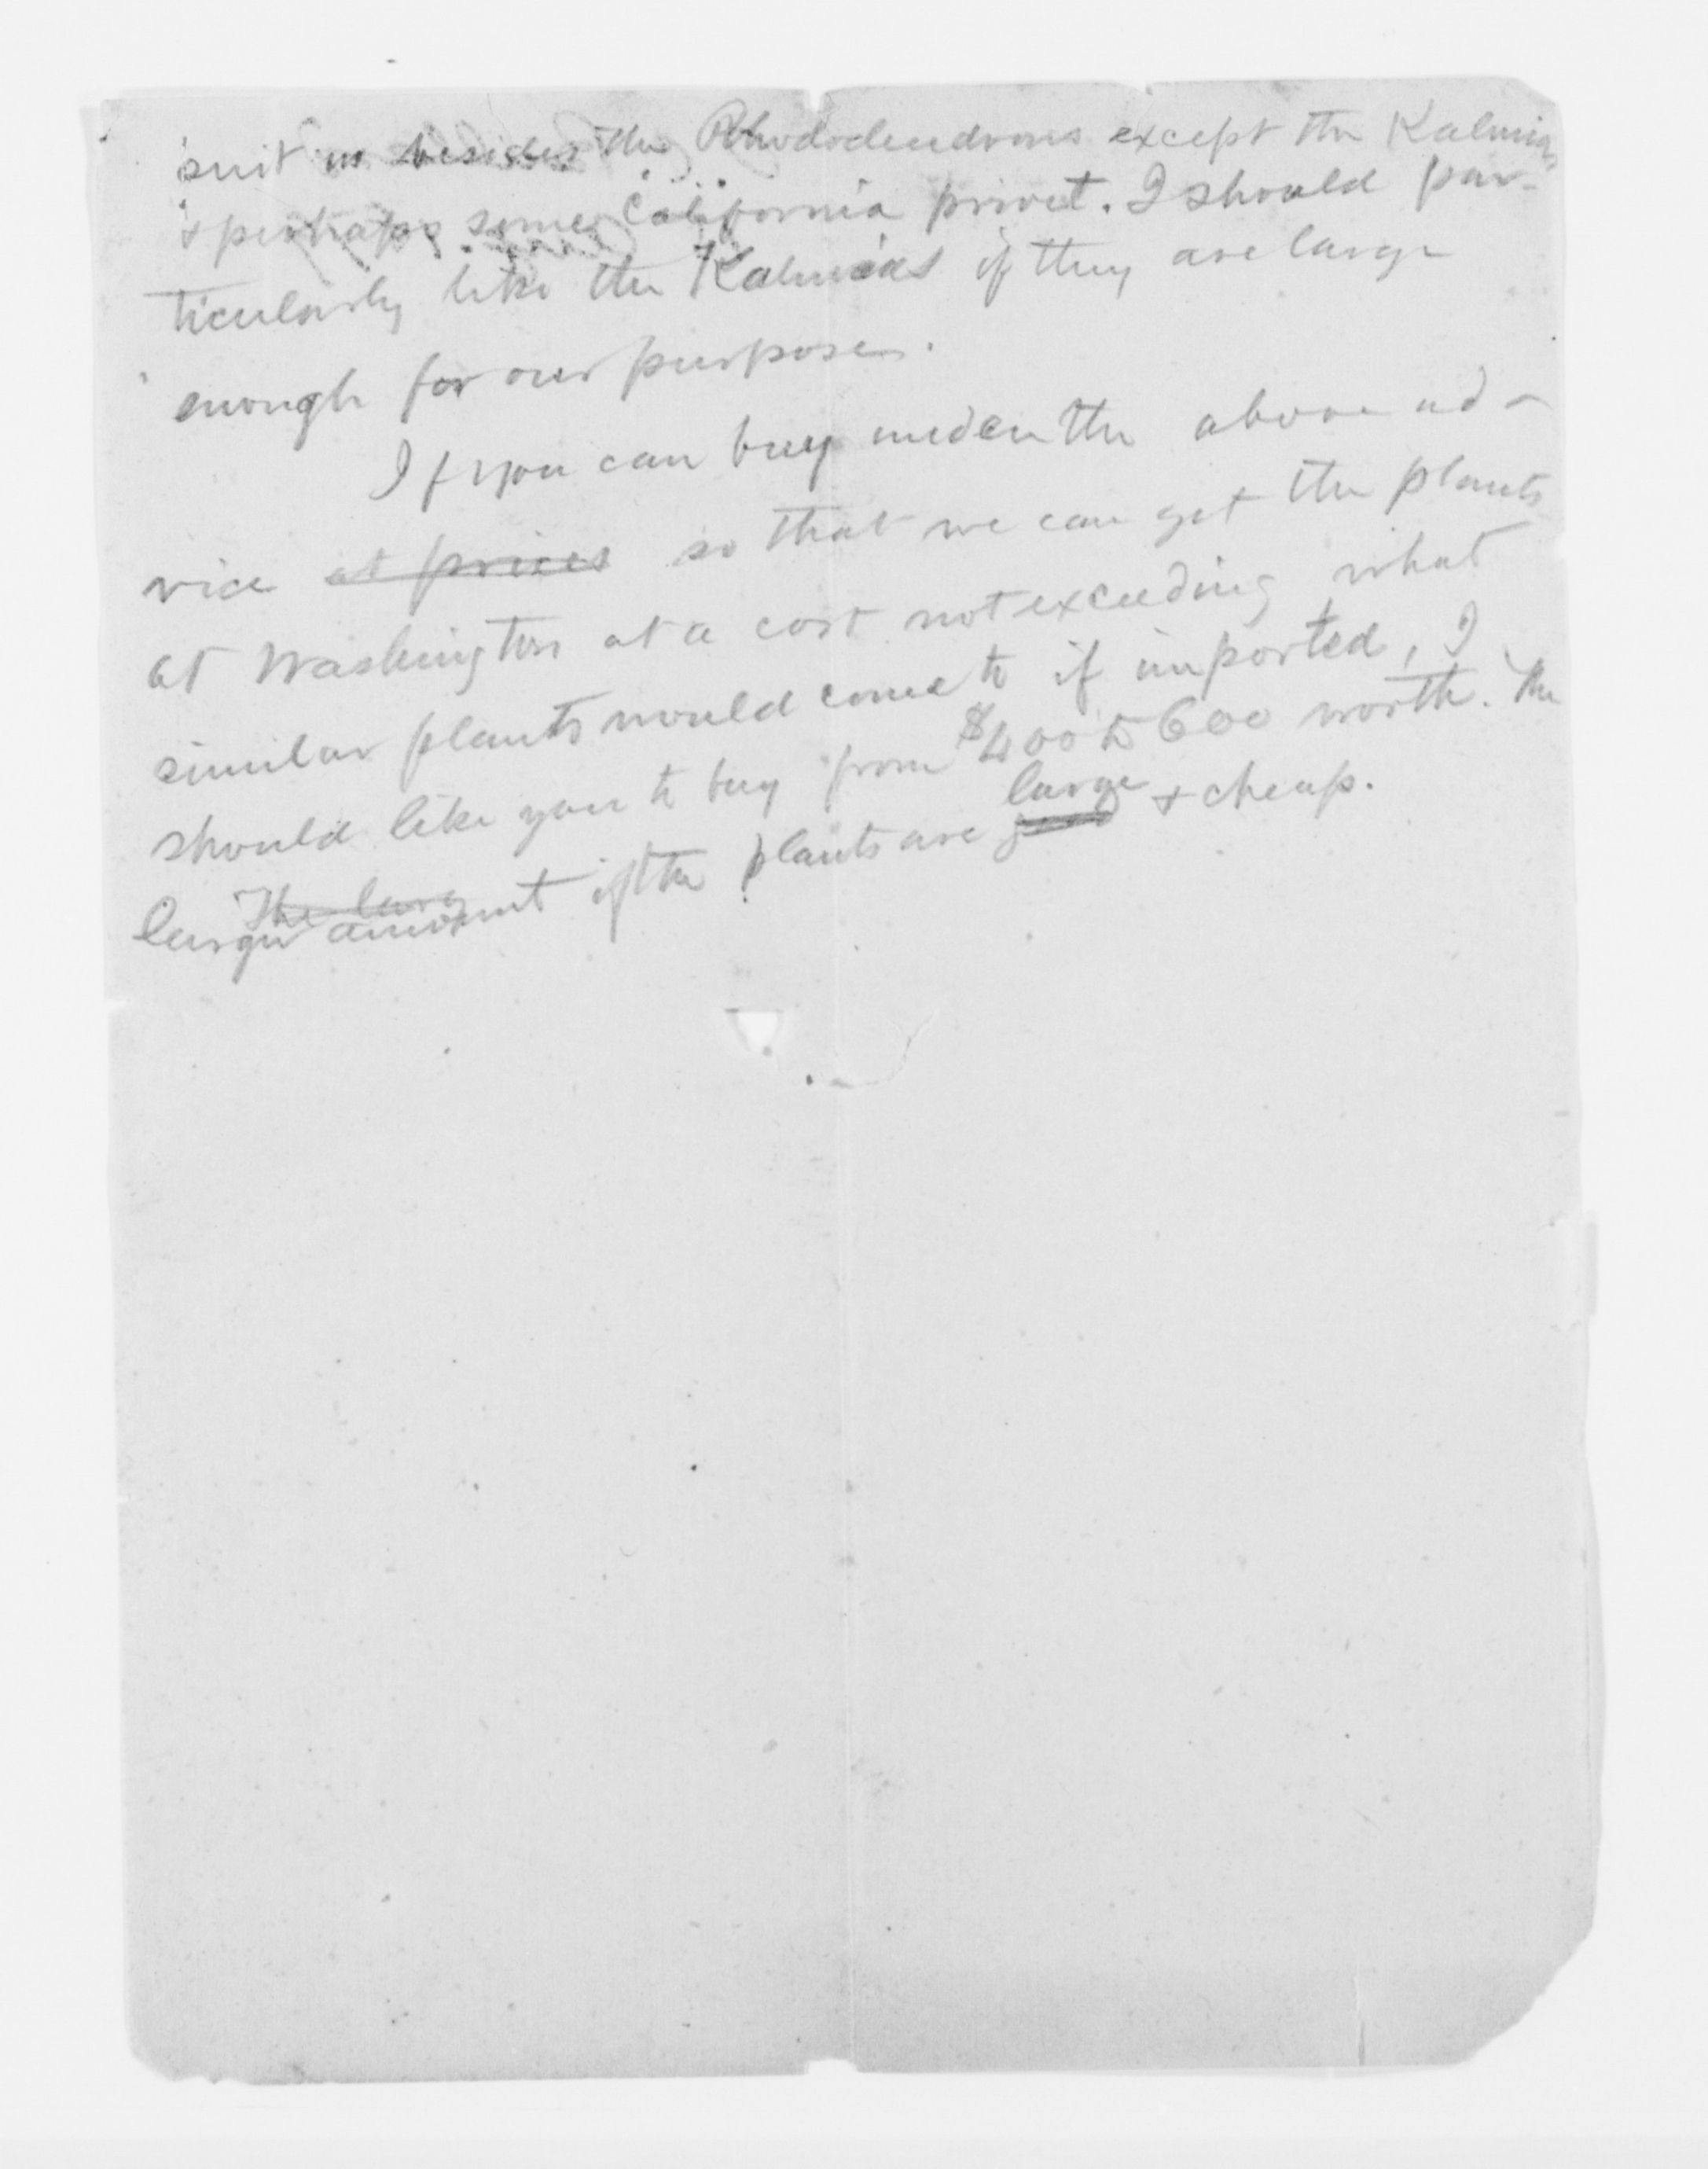 suit us besides the Rhododendrons except the Kalmias
& perhaps some California privet. I should par-
ticularly like the Kalmias if they are large
enough for our purposes.
If you can buy under the above ad-
vice at prices so that we can get the plants
at Washington at a cost not exceeding what
similar plants would come to if imported, I
should like you to buy from $400 to 600 worth. The
large
The larg
larger amount if the plants are & cheap.